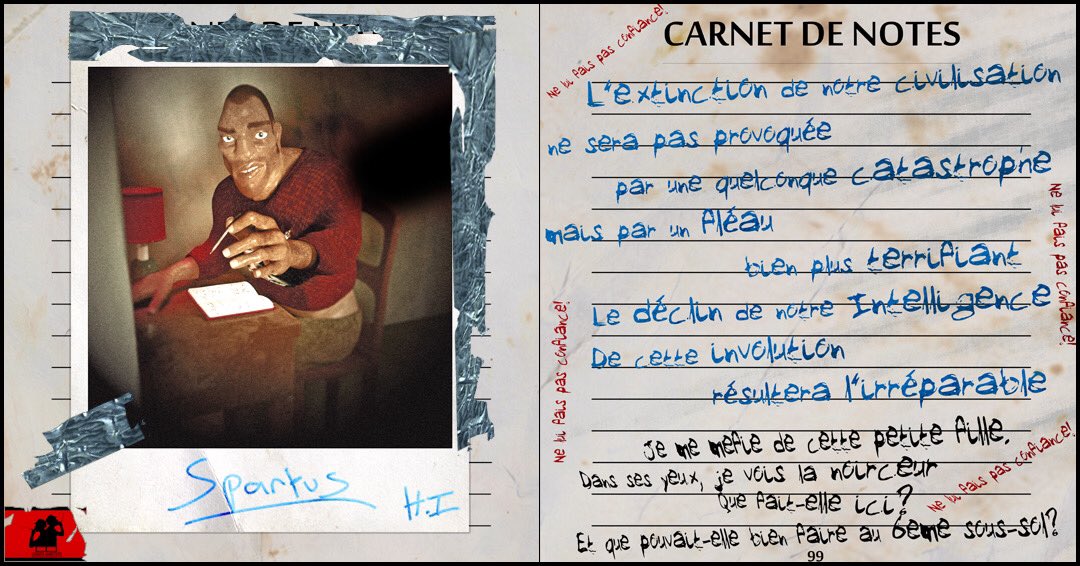 Spartus
H.I
CARNET DE NOTES
Ne lui fais pas confiance!
L'extinction de notre civilisation
ne sera pas provoquée
par une quelconque catastrophe
mais par un fléau
bien plus terrifiant
Le déclin de notre Intelligence
De cette involution
résultera l'irréparable
Ne lui fais pas confiance!
Ne lui fais pas confiance!
Je me méfie de cette petite fille.
Dans ses yeux, je vois la noirceur
Que fait-elle ici?
Ne lui fais pas confiance!
Et que pouvait-elle bien faire au 6ème sous-sol?
99